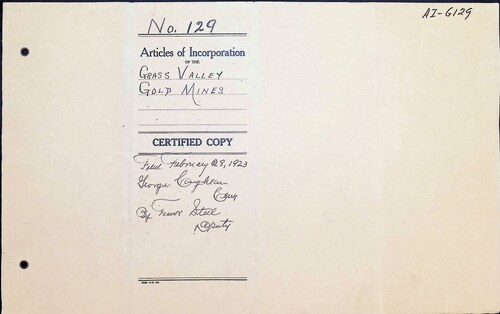 AI-6129
No. 129
Articles of Incorporation
OF THE
GRASS VALLEY
GOLD MINES
CERTIFIED COPY
Filed February 28, 1923
George Coughlan
Clerk
By Frank Steel
Deputy